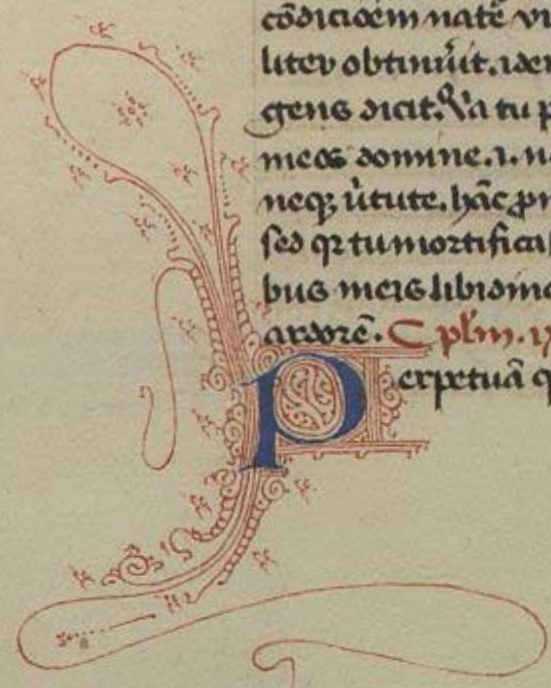 cōdicioēm natē vi
liter obtinuit. iden
gens dicit. Q'a tu p
meos domine. i. n
neqꝫ ũtute. hāc pr
sed qr tu mortifica
bus meis libidin
ardorē. C płm. ix
Perpetuā q